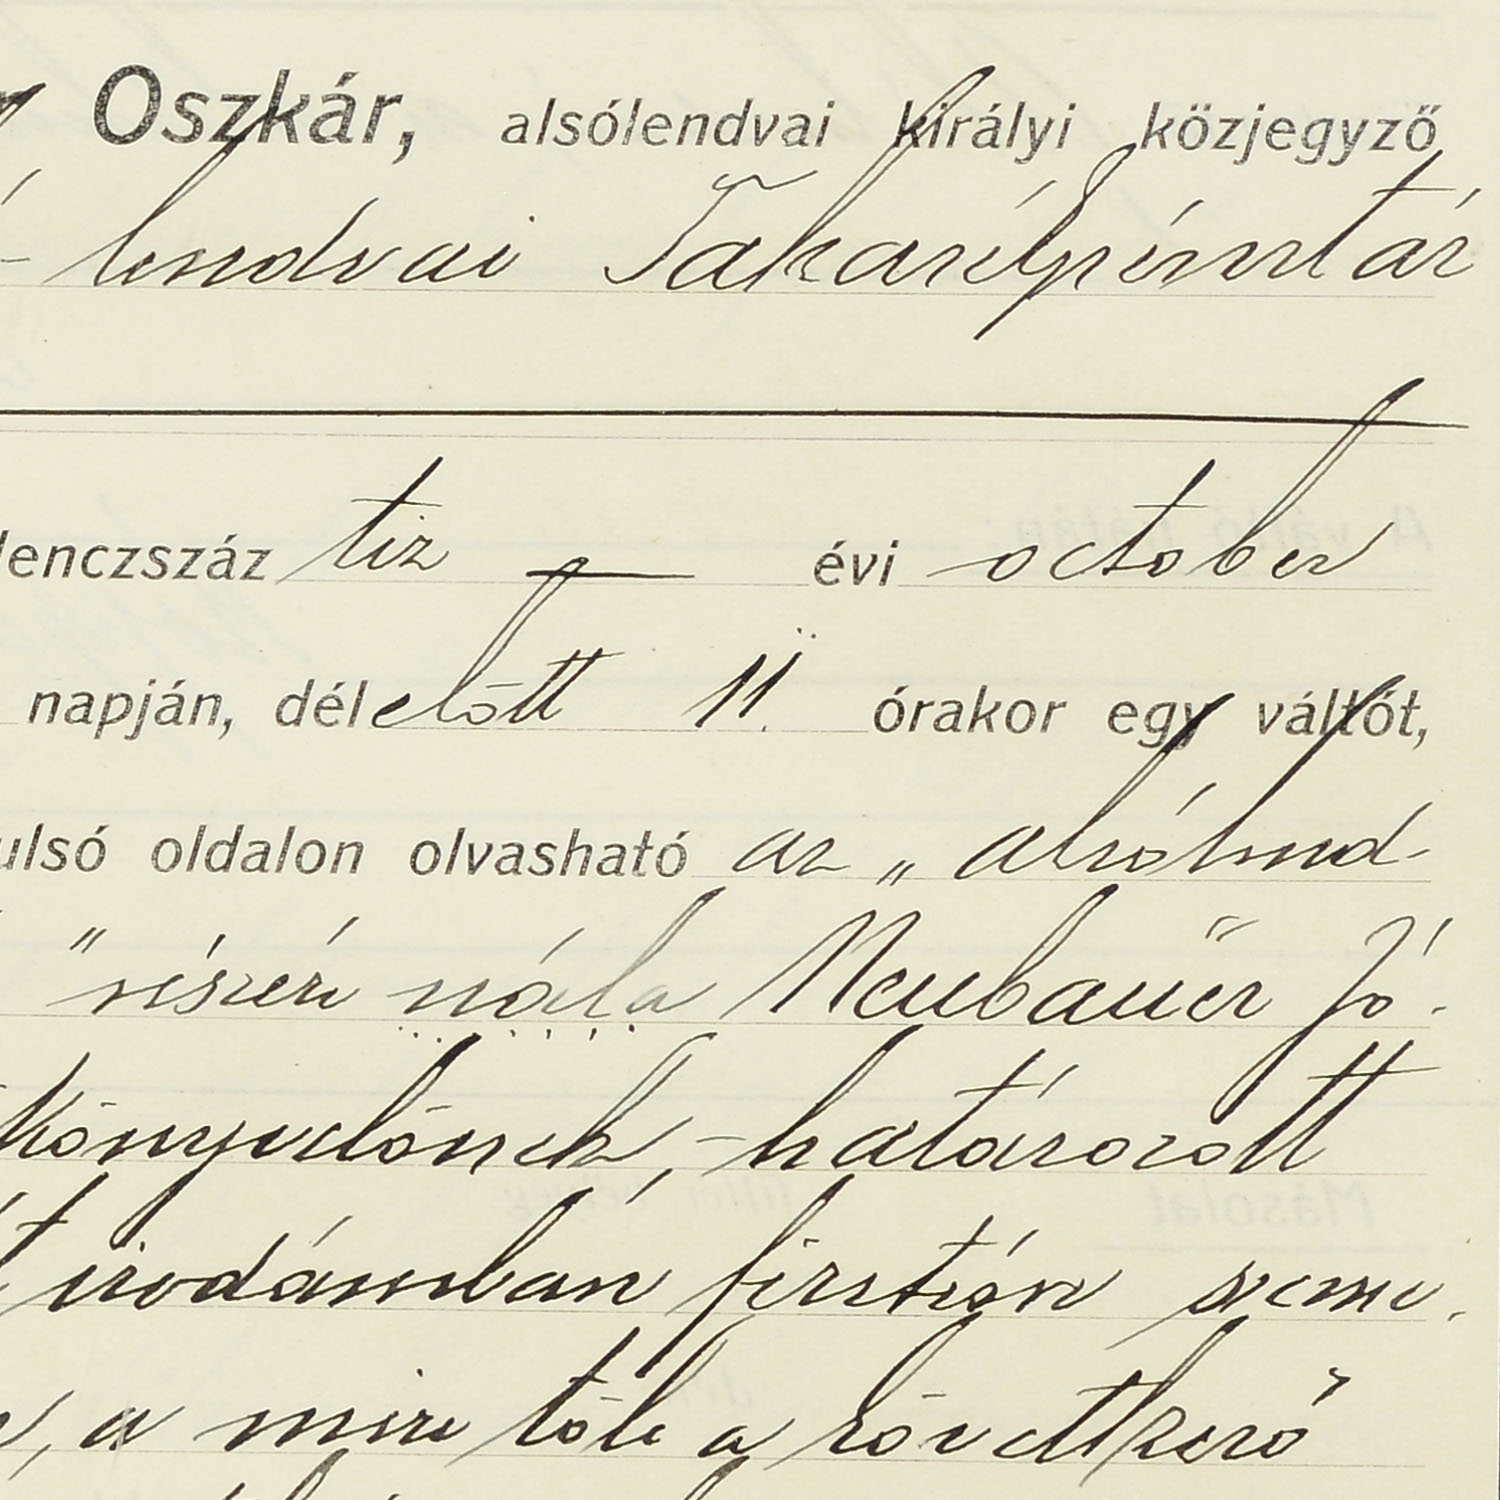 Oszkár, alsólendvai királyi közjegyző
- lendvai Takarékpénztár
lenczszáz tiz — évi october
napján, délelőtt 11. órakor egy váltót,
ulsó oldalon olvasható az „alsólend-
" részére nála Neubauer Jó-
könyvelőnek, - határozott
irodámban fizetése szeme-
, a mire tőle a következő